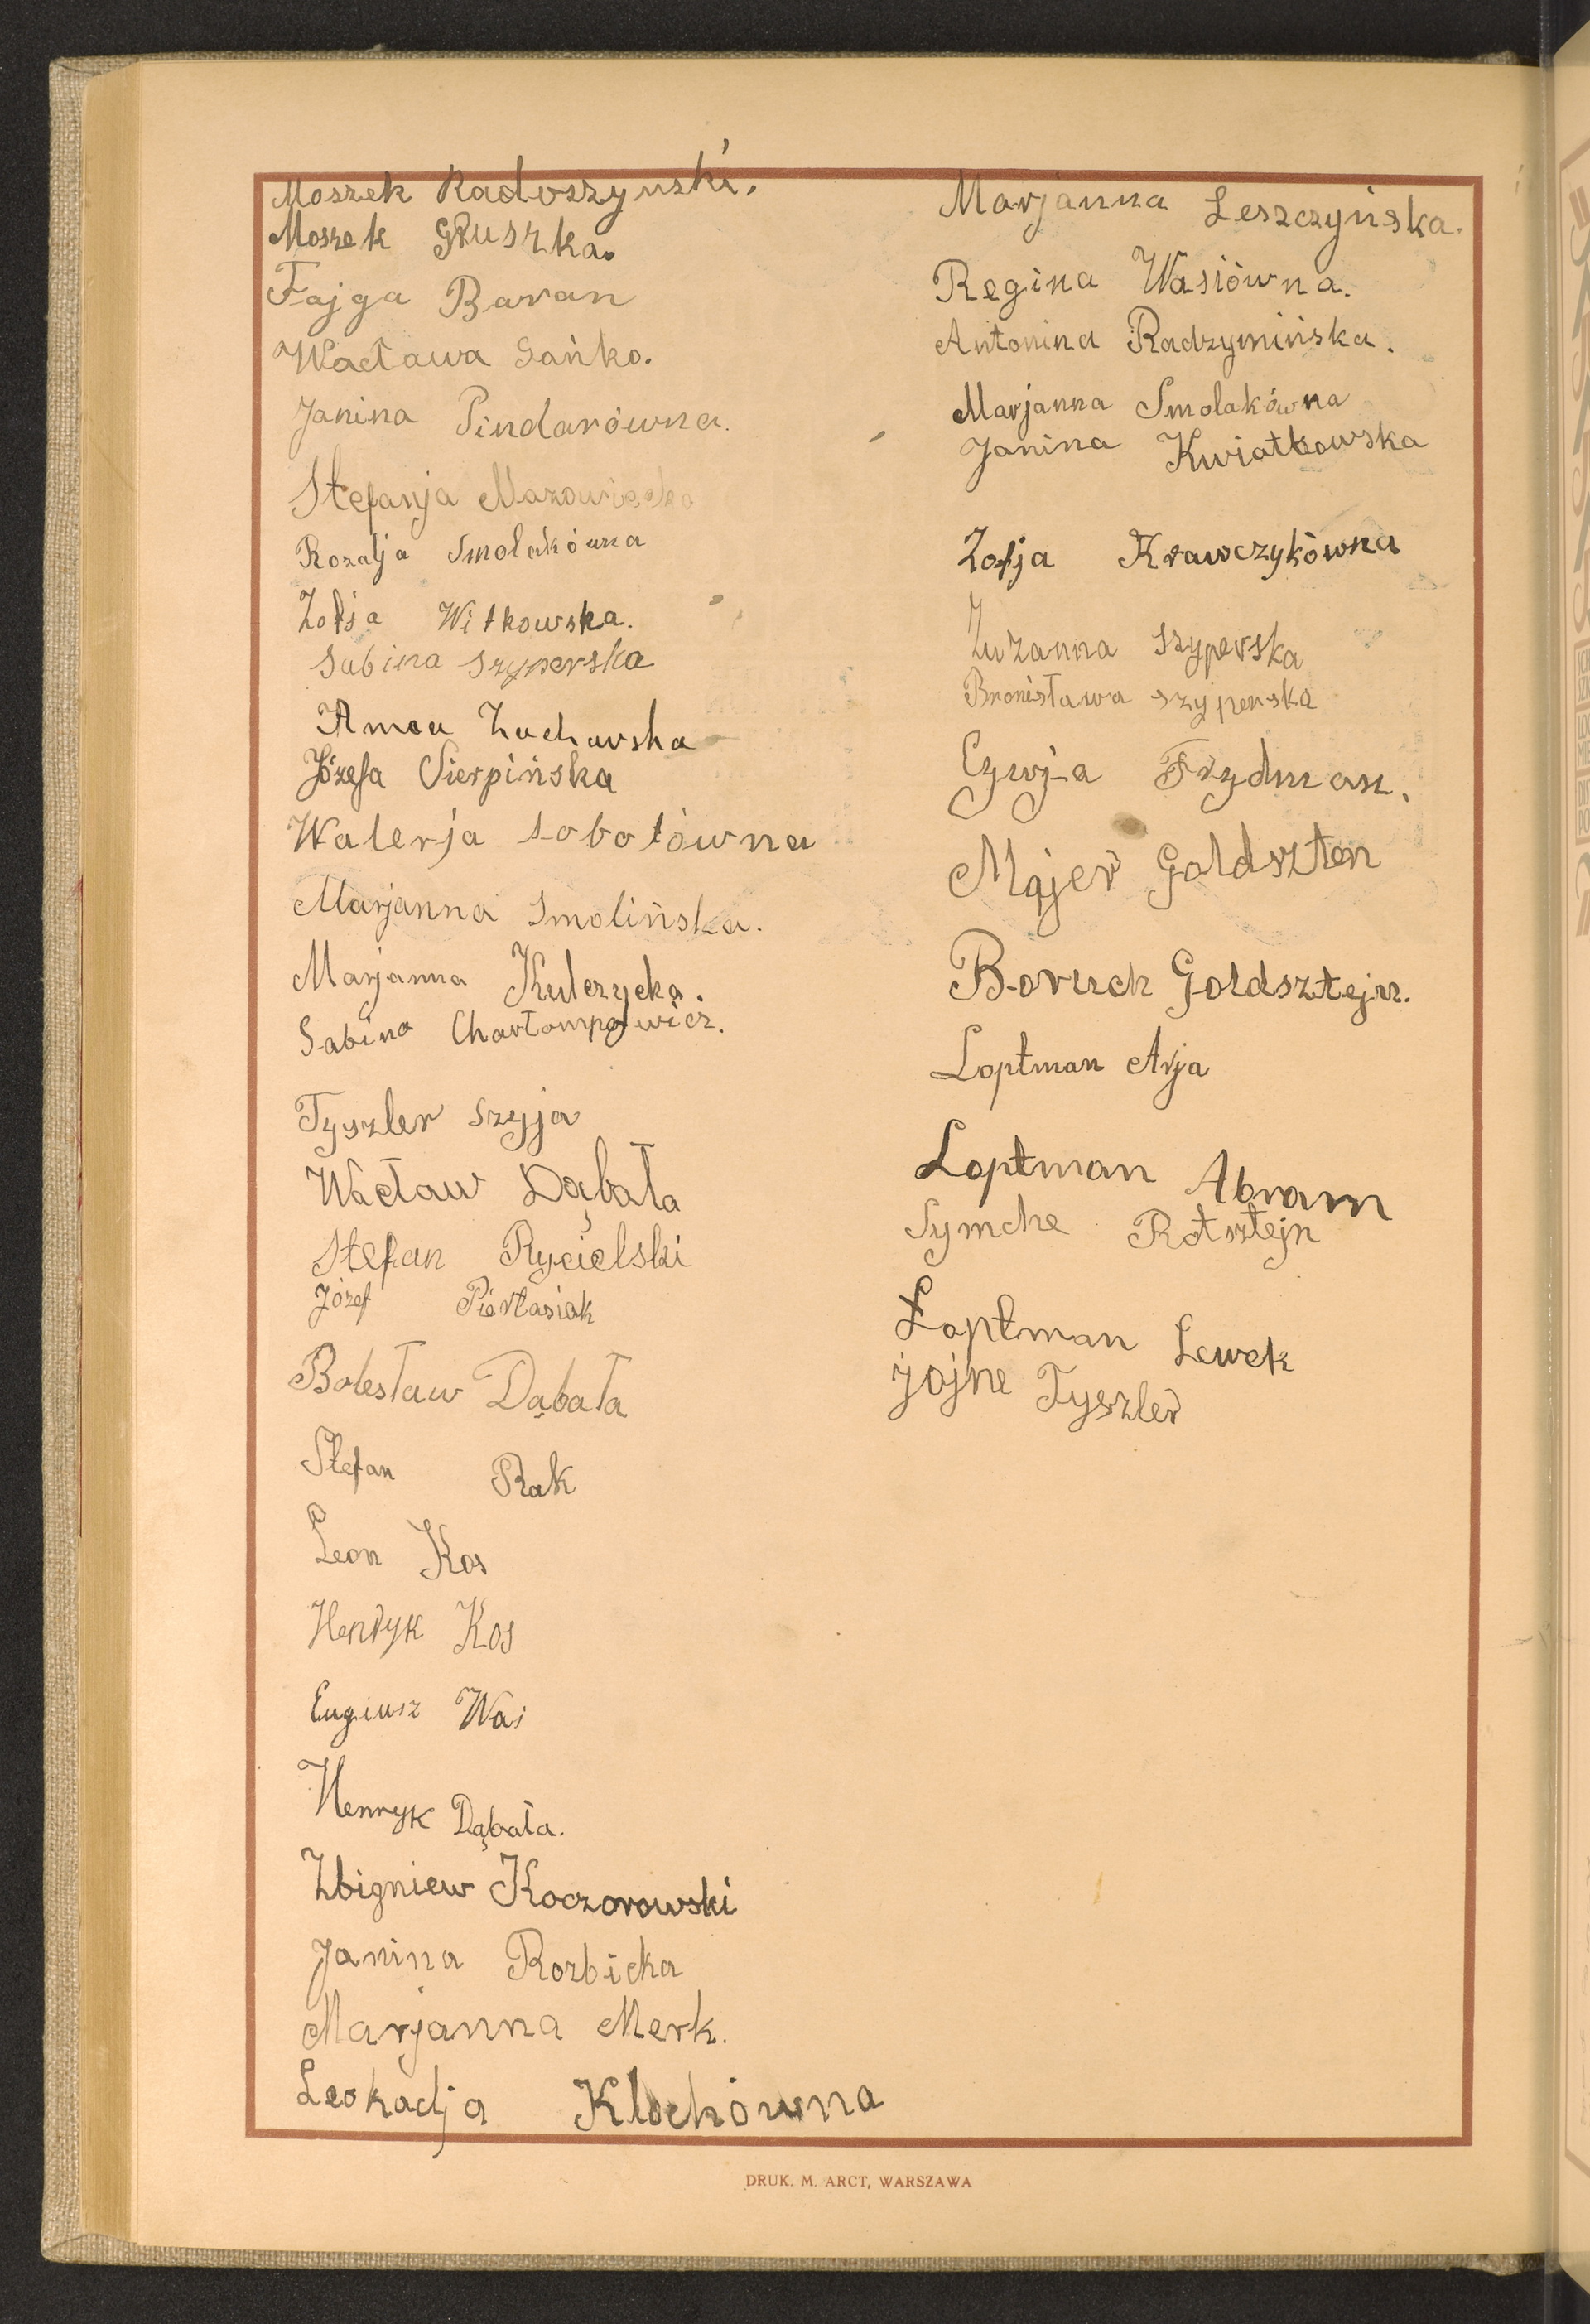 Moszek Radoszyński.
Moszek Głuszka.
Fajga Baran
Wacława Gańko.
Janina Pindarówna.
Stefanja Mazowiecka
Rozalja Smolakówna
Zofja Witkowska.
Sabina Szyperska
Józefa Sierpińska
Walerja Sobotówna
Marjanna Smolińska.
Marjanna Kulczycka.
Sabina
Tyszler Szyja
Wacław Dąbała
Stefan Rycielski
Józef
Bolesław Dąbała
Stefan Rak
Leon Kos
Henryk Kos
Eugiusz Waś
Henryk Dąbała.
Zbigniew Koczorowski
Janina Rozbicka
Marjanna Merk.
Leokadja Klochówna
Marjanna Leszczyńska.
Regina Wasiówna.
Antonina Radzymińska.
Marjanna Smolakówna
Janina Kwiatkowska
Zofja Krawczykówna
Zuzanna Szyperska
Bronisława Szyperska
Cywja Frydman.
Majer Goldszten
Boruch Goldsztejn.
Loptman Arja
Loptman Abram
Symche Rotsztejn
Loptman Lewek
Jojne Tyszler
DRUK. M. ARCT, WARSZAWA